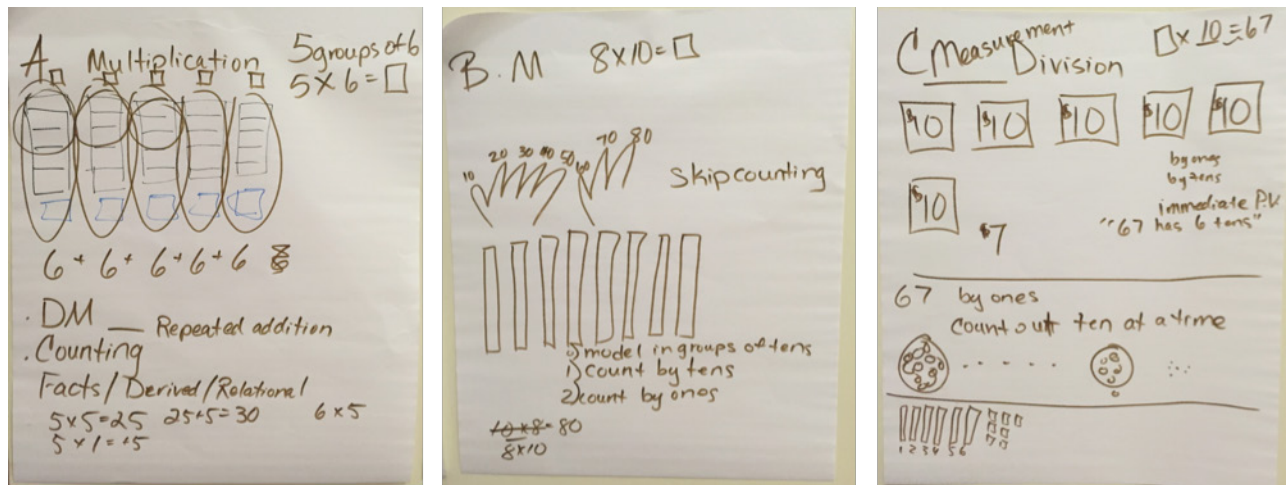 A Multiplication
5 groups of 6
5 × 6 = □
6 + 6 + 6 + 6 + 6
. DM — Repeated addition
. Counting
Facts/Derived/Relational
5 × 5 = 25 25+5=30 6 x 5
5 × 1 = +5
B. M 8 x 10 = □
10 20 30 40 50 60 70 80
Skip counting
0) model in groups of tens
1) count by tens
2) count by ones
10 x 8 = 80
8x10
C Measurement
Division
□ x 10 = 67
$10 $10 $10 $10 $10
by ones
by tens
immediate P.V.
"67 has 6 tens"
$10
$7
67 by ones
Count out ten at a time
1 2 3 4 5 6